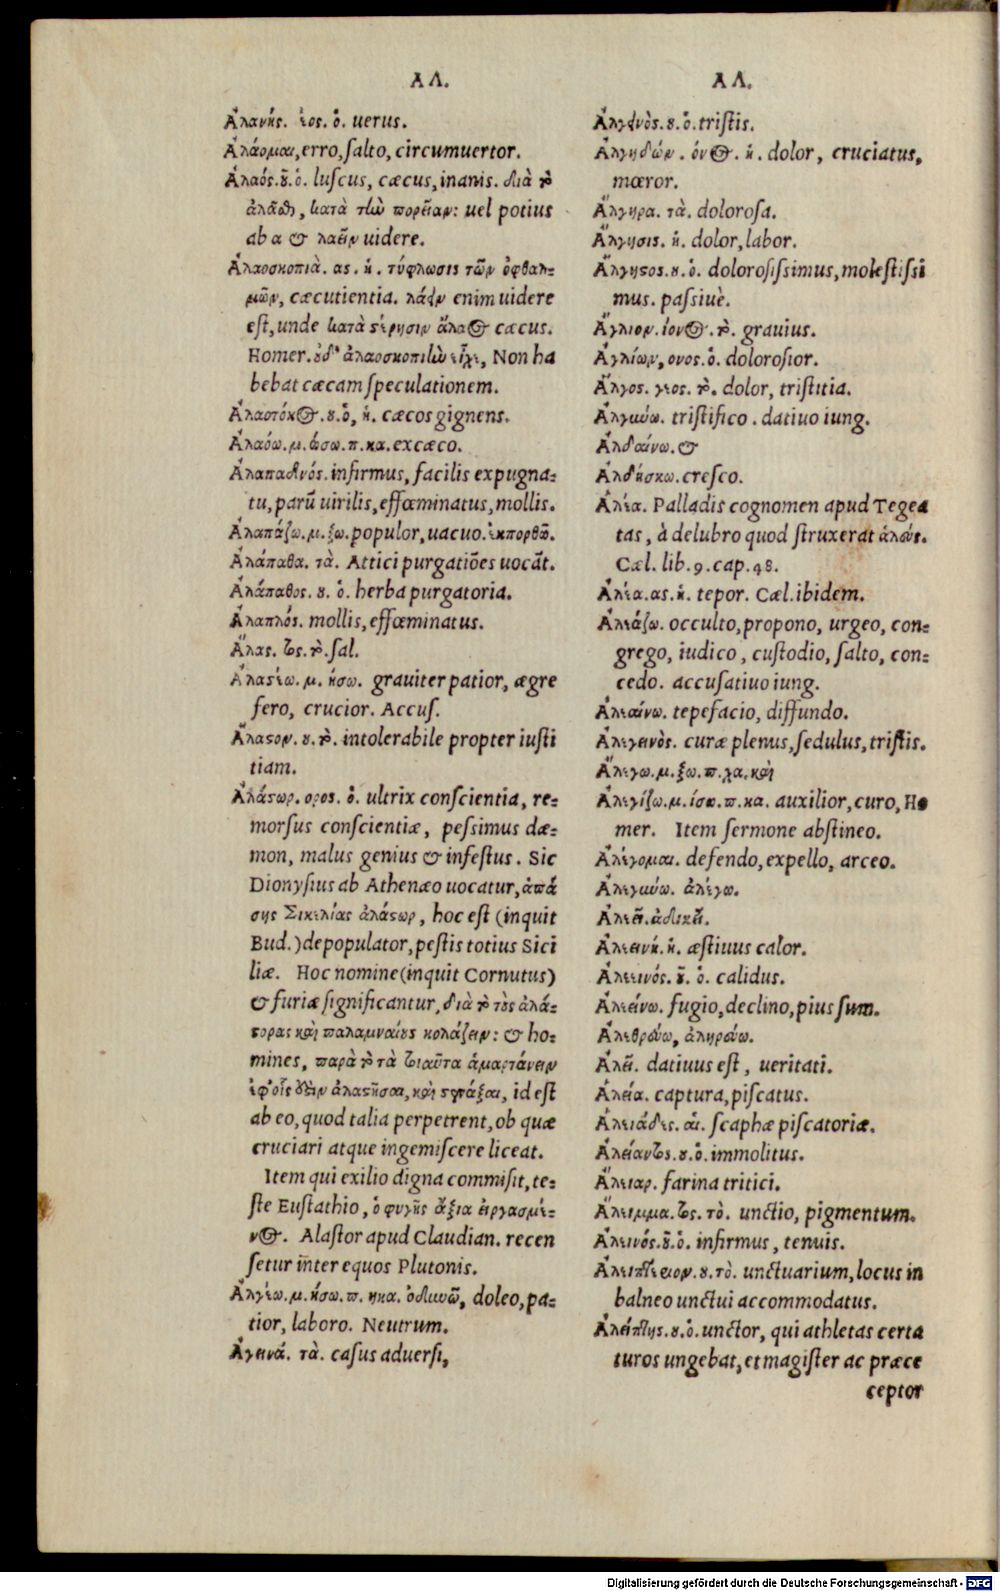 ΑΛ.
Ἀλανής. έος. ὁ. uerus.
Ἀλάομαι, erro, ſalto, circumuertor.
Ἀλαός. οῦ. ὁ. luſcus, cæcus, inanis. διὰ τὸ
ἀλᾶσθαι, κατὰ τὴν πορείαν: uel potius
ab α & λαεῖν uidere.
Ἀλαοσκοπιὰ. ας. ἡ. τύφλωσις τῶν ὀφθαλ-
μῶν, cæcutientia. λάειν enim uidere
eſt, unde κατὰ στέρησιν ἄλαος cæcus.
Homer. οὐδ' ἀλαοσκοπιὴν εἶχε, Non ha
bebat cæcam ſpeculationem.
Ἀλαοτόκος. ου. ὁ, ἡ. cæcos gignens.
Ἀλαόω. μ. ώσω. π. κα. excæco.
Ἀλαπαδνός. infirmus, facilis expugna-
tu, parū uirilis, effœminatus, mollis.
Ἀλαπάζω. μ. ξω. populor, uacuo. ἐκπορθῶ.
Ἀλάπαθα. τὰ. Attici purgatiōes uocāt.
Ἀλάπαθος. ου. ὁ. herba purgatoria.
Ἀλαπλός. mollis, effœminatus.
Ἅλας. τος. τὸ. ſal.
Ἀλαστέω. μ. ήσω. grauiter patior, ægre
fero, crucior. Accuſ.
Ἄλαστον. ου. τὸ. intolerabile propter iuſti
tiam.
Ἀλάστωρ. ορος. ὁ. ultrix conſcientia, re-
morſus conſcientiæ, peſsimus dæ-
mon, malus genius & infeſtus. Sic
Dionyſius ab Athenæo uocatur, ἁπά
σης Σικελίας ἀλάστωρ, hoc eſt (inquit
Bud.) depopulator, peſtis totius Sici
liæ. Hoc nomine (inquit Cornutus)
& furiæ ſignificantur, διὰ τὸ τοὺς ἀλά-
στορας καὶ παλαμναίους κολάζειν: & ho-
mines, παρὰ τὸ τὰ τοιαῦτα ἁμαρτάνειν
ἐφ' οἷς ἀλαστῆσαι, καὶ στενάξαι, id eſt
ab eo, quod talia perpetrent, ob quæ
cruciari atque ingemiſcere liceat.
Item qui exilio digna commiſit, te-
ſte Euſtathio, ὁ φυγῆς ἄξια εἰργασμέ-
νος. Alaſtor apud Claudian. recen
ſetur inter equos Plutonis.
Ἀλγέω. μ. ήσω. π. ηκα. ὀδυνῶ, doleo, pa-
tior, laboro. Neutrum.
Ἀγεινά. τὰ. caſus aduerſi,
ΑΛ.
Ἀλγεινὸς. ου. ὁ. triſtis.
Ἀλγηδών. όνος. ἡ. dolor, cruciatus,
mœror.
Ἄλγηρα. τὰ. doloroſa.
Ἄλγησις. ἡ. dolor, labor.
Ἄλγηστος. ου. ὁ. doloroſiſsimus, moleſtiſsi
mus. paſsiuè.
Ἄλγιον. ίονος. τὸ. grauius.
Ἀλγίων, ονος. ὁ. doloroſior.
Ἄλγος. γεος. τὸ. dolor, triſtitia.
Ἀλγύνω. triſtifico. datiuo iung.
Ἀλδαίνω. &
Ἀλδήσκω. creſco.
Ἀλέα. Palladis cognomen apud Tegea
tas, à delubro quod ſtruxerat ἀλεύς.
Cæl. lib. 9. cap. 48.
Ἀλέα. ας. ἡ. tepor. Cæl. ibidem.
Ἀλεάζω. occulto, propono, urgeo, con-
grego, iudico, cuſtodio, ſalto, con-
cedo. accuſatiuo iung.
Ἀλεαίνω. tepefacio, diffundo.
Ἀλεγεινὸς. curæ plenus, ſedulus, triſtis.
Ἄλεγω. μ. ξω. π. χα. καὶ
Ἀλεγίζω. μ. ίσω. π. κα. auxilior, curo, Ho
mer. Item ſermone abſtineo.
Ἀλέγομαι. defendo, expello, arceo.
Ἀλεγύνω. ἀλέγω.
Ἀλεεῖ. ἀδικεῖ.
Ἀλεεινή. ἡ. æſtiuus calor.
Ἀλεεινός. οῦ. ὁ. calidus.
Ἀλεείνω. fugio, declino, pius ſum.
Ἀλεθρεύω, ἀληρεύω.
Ἀλεῖ. datiuus eſt, ueritati.
Ἀλεία. captura, piſcatus.
Ἀλειάδες. αἱ. ſcaphæ piſcatoriæ.
Ἀλείαντος. ου. ὁ. immolitus.
Ἄλειαρ. farina tritici.
Ἄλειμμα. τος. τὸ. unctio, pigmentum.
Ἀλεινός. οῦ. ὁ. infirmus, tenuis.
Ἀλειπτέειον. ου. τὸ. unctuarium, locus in
balneo unctui accommodatus.
Ἀλείπτης. ου. ὁ. unctor, qui athletas certa
turos ungebat, et magiſter ac præce
ceptor
Digitalisierung gefördert durch die Deutsche Forschungsgemeinschaft - DFG